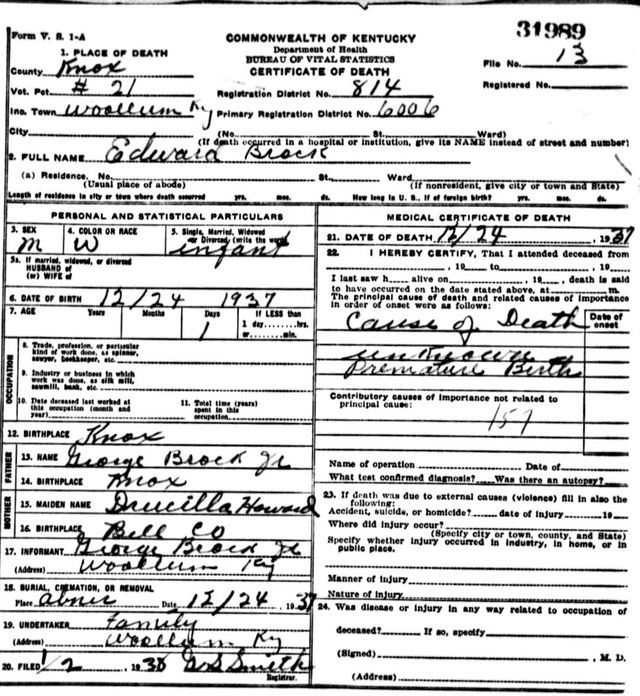 Form V. S. 1-A
31989
COMMONWEALTH OF KENTUCKY
Department of Health
BUREAU OF VITAL STATISTICS
CERTIFICATE OF DEATH
File No. 13
Registered No.
1. PLACE OF DEATH
County Knox
Vot. Pct. # 21
Registration District No. 814
Inc. Town Woollum Ky Primary Registration District No. 6006
City (No. St. Ward)
(If death occurred in a hospital or institution, give its NAME instead of street and number)
2. FULL NAME Edward Brock
(a) Residence. No. St. Ward
(Usual place of abode) (If nonresident, give city or town and State)
Length of residence in city or town where death occurred yrs. mos. ds. How long in U. S., if of foreign birth? yrs. mos. ds.
PERSONAL AND STATISTICAL PARTICULARS
3. SEX M
4. COLOR OR RACE W
5. Single, Married, Widowed or Divorced (write the word) infant
5a. If married, widowed, or divorced
HUSBAND of
(or) WIFE of
6. DATE OF BIRTH 12/24 1937
7. AGE Years Months Days 1 If LESS than 1 day hrs. or min.
OCCUPATION
8. Trade, profession, or particular kind of work done, as spinner, sawyer, bookkeeper, etc.
9. Industry or business in which work was done, as silk mill, sawmill, bank, etc.
10. Date deceased last worked at this occupation (month and year)
11. Total time (years) spent in this occupation
12. BIRTHPLACE Knox
FATHER
13. NAME George Brock Jr
14. BIRTHPLACE Knox
MOTHER
15. MAIDEN NAME Drucilla Howard
16. BIRTHPLACE Bell Co
17. INFORMANT George Brock Jr
(Address) Woollum Ky
18. BURIAL, CREMATION, OR REMOVAL
Place Abner Date 12/24 1937
19. UNDERTAKER Family
(Address) Woollum Ky
20. FILED 1/2 1938 Smith
Registrar.
MEDICAL CERTIFICATE OF DEATH
21. DATE OF DEATH 12/24 1937
22. I HEREBY CERTIFY, That I attended deceased from
, 19 to , 19
I last saw h alive on , 19 , death is said
to have occurred on the date stated above, at m.
The principal cause of death and related causes of importance
in order of onset were as follows:
Date of onset
Cause of Death
unknown
Premature Birth
Contributory causes of importance not related to
principal cause:
157
Name of operation Date of
What test confirmed diagnosis? Was there an autopsy?
23. If death was due to external causes (violence) fill in also the
following:
Accident, suicide, or homicide? date of injury 19
Where did injury occur?
(Specify city or town, county, and State)
Specify whether injury occurred in industry, in home, or in
public place.
Manner of injury
Nature of injury
24. Was disease or injury in any way related to occupation of
deceased? If so, specify
(Signed) , M. D.
(Address)